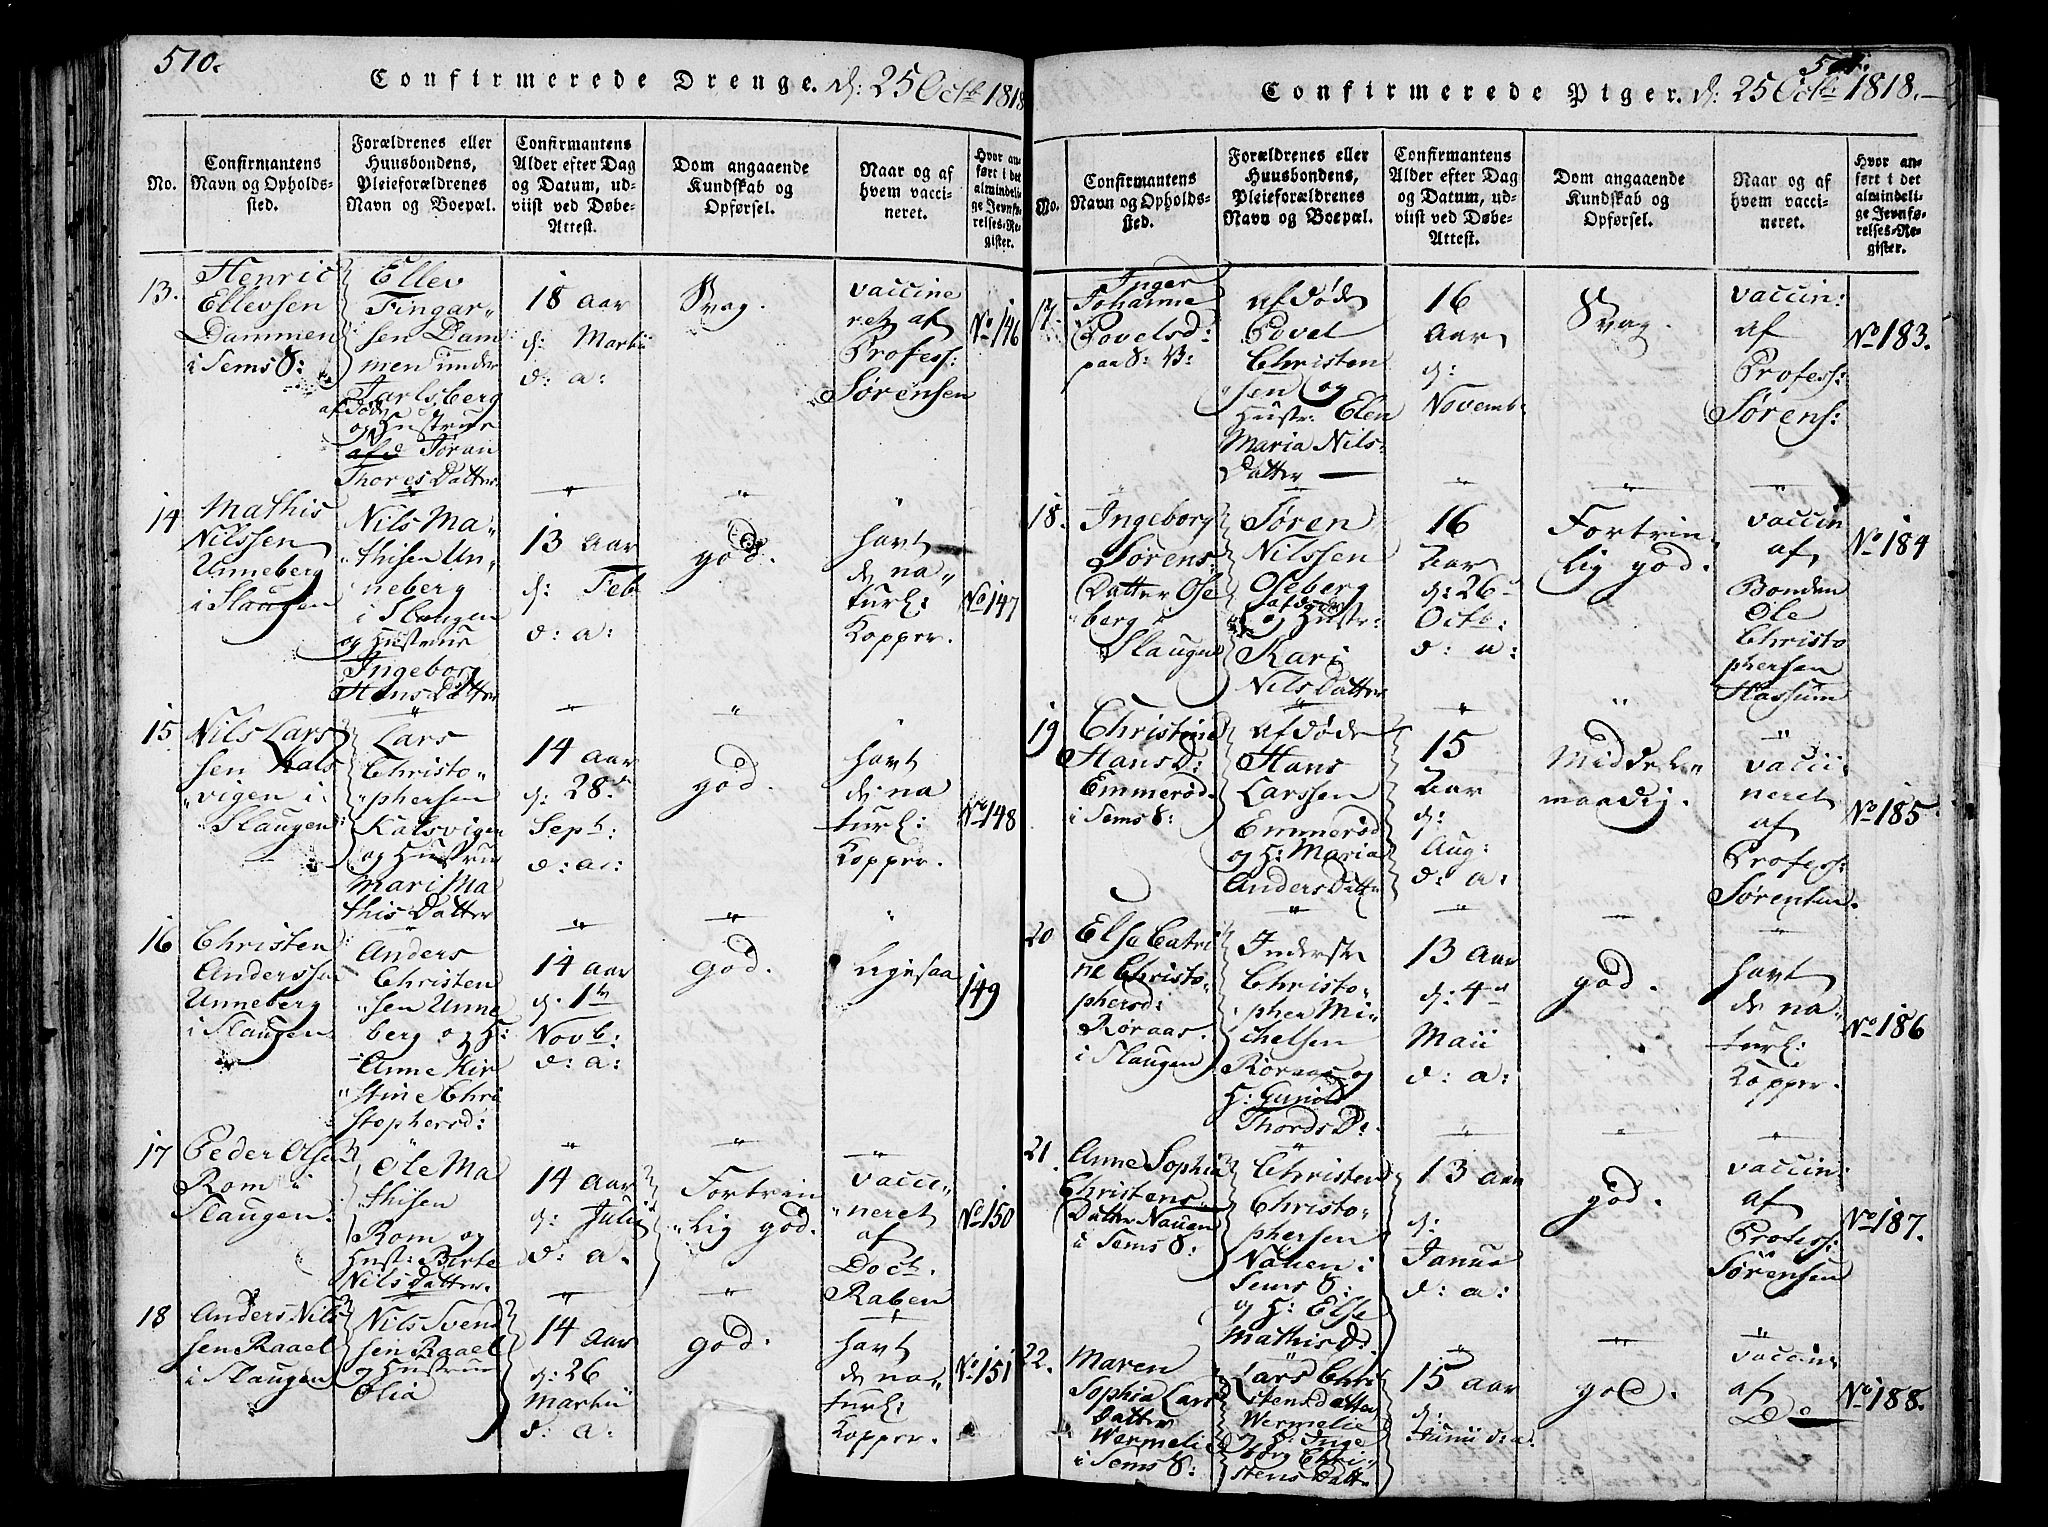 510.
Confirmerede Drenge. d: 25 Octb 1818
No.
Confirmantens
Navn og Opholds-
sted.
Forældrenes eller
Huusbondens,
Pleieforældrenes
Navn og Boepæl.
Confirmantens
Alder efter Dag
og Datum, ud-
viist ved Døbe-
Attest.
Dom angaaende
Kundskab og
Opførsel.
Naar og af
hvem vacci-
neret.
Hvor an-
ført i det
almindeli-
ge Jevnfø-
relses-Re-
gister.
13.
Henric
Ellevsen
Dammen
i Sems S:
Ellev
Fingar„
sen Dam
men under
Jarlsberg
afdøde
og Hustrue
Joran
Thores Datter
18 Aar
d: Martii
d: a:
Svag.
vaccine
ret af
Profess:
Sørensen
No 146
14
Mathis
Nilssen
Unneberg
i Slaugen
Nils Ma„
„thisen Un„
neberg
i Slaugen
og Hustrue
Ingeborg
Hans Datter
13 Aar
d: Feb
d: a:
god.
havt
de na„
turl:
Kopper.
No 147
15
Nils Lars
sen Kals
„vigen i
Slaugen
Lars
Christo„
„phersen
Kalsvigen
og Hustrue
Mari Ma
this Datter
14 Aar
d: 28.
Septr:
d: a:
god.
havt
de na
turl:
Kopper.
No 148
16
Christen
Anderssen
Unneberg
i Slaugen
Anders
Christen
„sen Unne
berg og H:
Anne Kir
„stine Chri
stophersd:
14 Aar
d. 1te
Novb:
d: a:
god.
Ligesaa
149
17
Peder Olsen
Rom i
Slaugen.
Ole Ma
thisen
Rom og
Hust: Birte
Nils Datter.
14 Aar
d: Julii
d: a.
Fortrin
„lig god.
vacci„
„neret
af
Doct.
Raben
No 150
18
Anders Nils
sen Raael
i Slaugen
Nils Svend
sen Raael
og Hustrue
Olia
14 Aar
d: 26
Martii
d: a:
god.
havt
de na„
turl:
Kopper.
No 151
511.
Confirmerede Piger. d: 25 Octb 1818.
No.
Confirmantens
Navn og Opholds-
sted.
Forældrenes eller
Huusbondens,
Pleieforældrenes
Navn og Boepæl.
Confirmantens
Alder efter Dag
og Datum, ud-
viist ved Døbe-
Attest.
Dom angaaende
Kundskab og
Opførsel.
Naar og af
hvem vacci-
neret.
Hvor an-
ført i det
almindeli-
ge Jevnfø-
relses-Re-
gister.
17.
Inger
Johanne
Povelsd:
paa S: B:
afdøde
Povel
Christen
„sen og
Hustr: Elen
Maria Nils-
Datter
16
Aar
d:
Novemb:
Svag.
vaccin:
af
Profess:
Sørens:
No 183.
18.
Ingeborg
Sørens-
Datter Ose
„berg i
Slaugen
Søren
Nilssen
Oseberg
afdøde
og Hustr:
Kari
Nils Datter
16
Aar
d: 26
Octb:
d: a:
Fortrin„
lig god.
vaccin
af
Bonden
Ole
Christo
phersen
Hassum
No 184
19
Christine
Hans D:
Emmerød.
i Sems S:
afdøde
Hans
Larssen
Emmerød
og H: Maria
Anders Datter
15
Aar
d:
Aug:
d: a:
Middel„
maadig.
vacci„
neret
af
Profess:
Sørensen.
No 185.
20
Else Catri
ne Christo„
phersd:
Røraas.
i Slaugen
Inderste
Christo„
„pher Mi„
chelsen
Røraas og
H: Gunild
Thords D:
13 Aar
d: 4de
Maii
d: a:
god.
havt
de na„
turl:
Kopper.
No 186
21.
Anne Sophia
Christens
Datter Nauen
i Sems S:
Christen
Christo„
phersen
Nauen i
Sems S:
og H: Else
Mathis D.
13 Aar
d:
Janua
d: a:
god.
vaccin:
af
Profess:
Sørensen
No 187.
22.
Maren
Sophia Lars
Datter
Wermelie
i Sems S:
Lars Chri
stensdatter
Wermelie
og H: Inge
borg Chri„
stens Datter
15 Aar
d:
Junii d: a
god.
vaccin:
af
No 188.